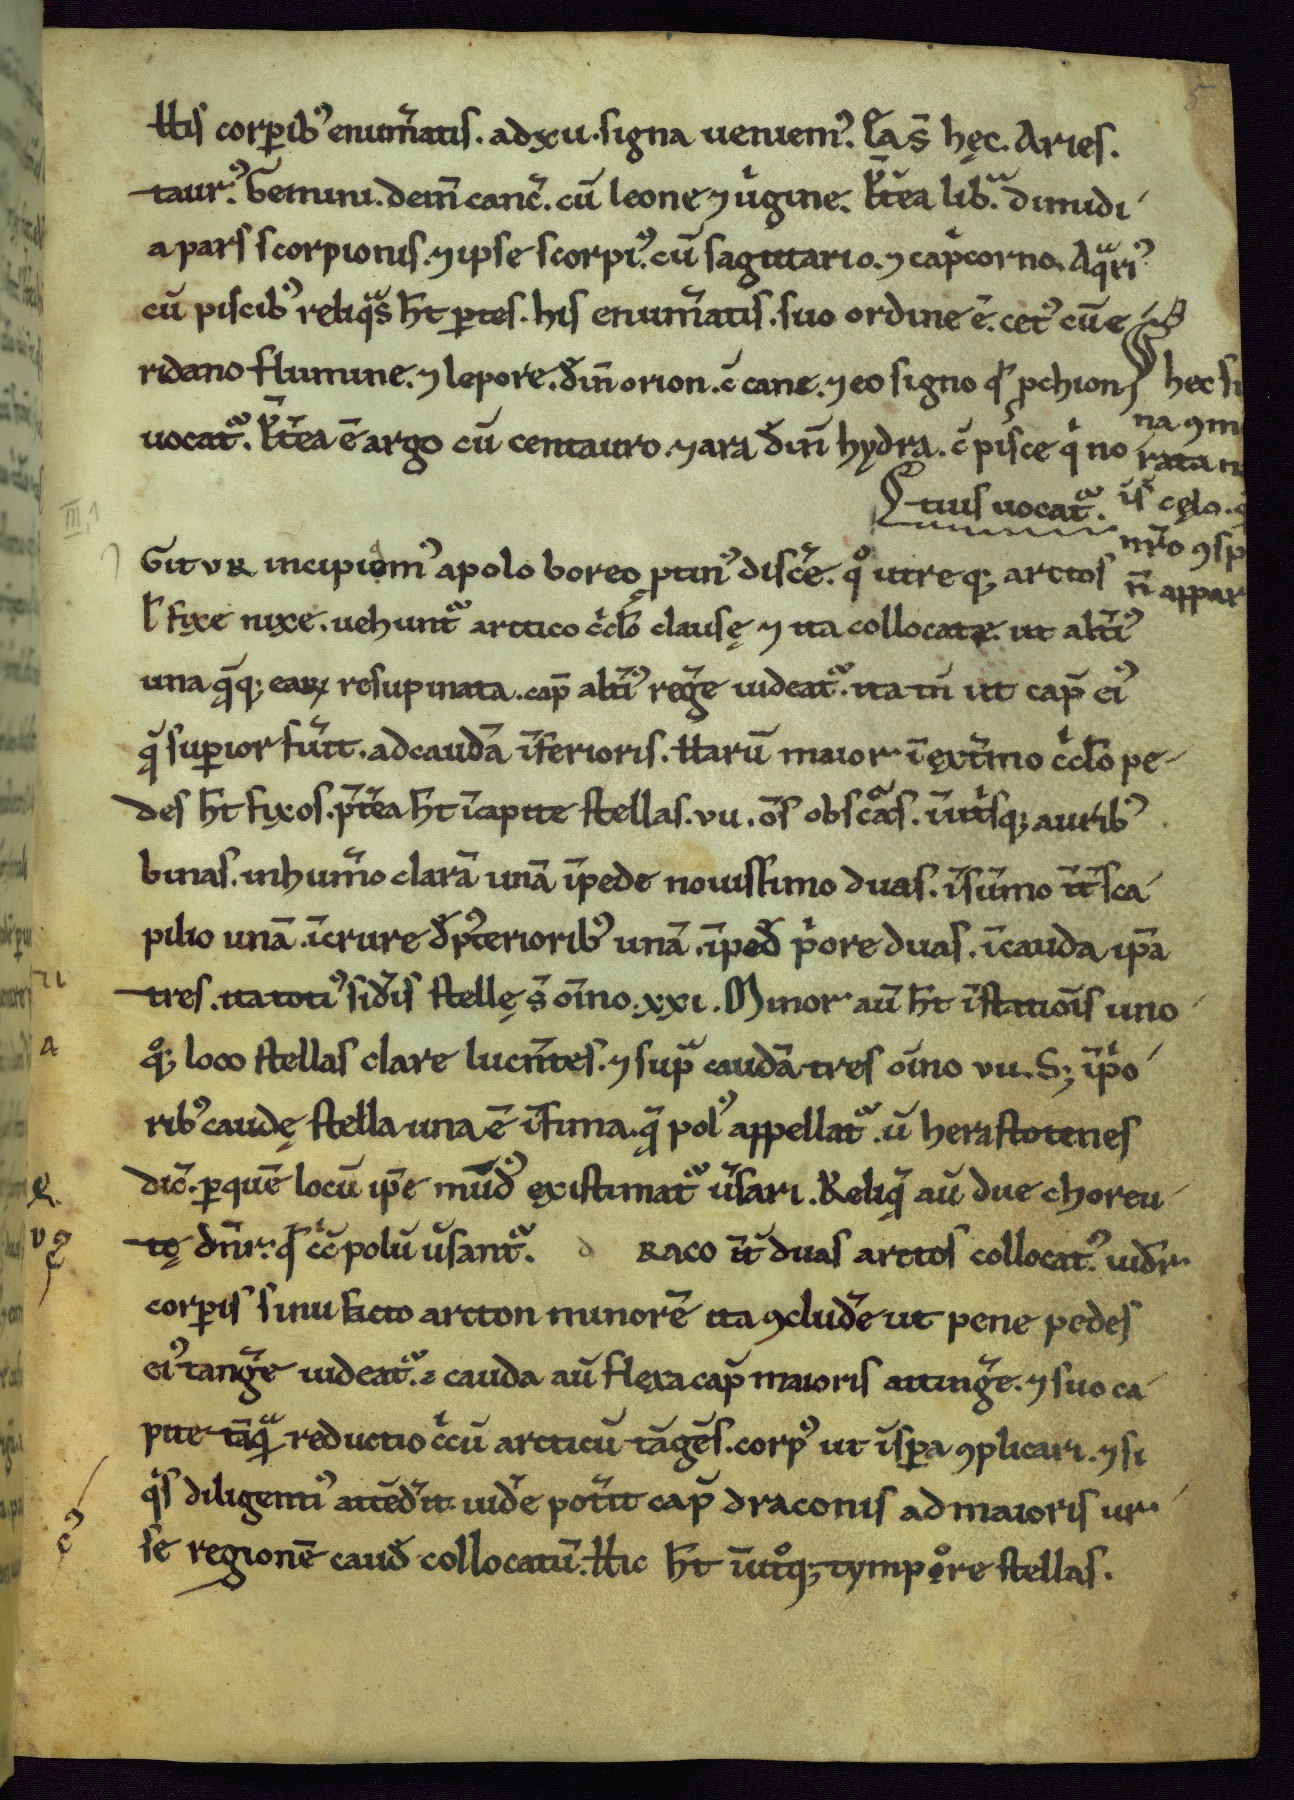 5
ƚƚis corꝑib᾽ enum̃atis. ad xu. signa ueniem᾽. Ea s̄ hęc. Aries.
taur᾽. Gemini. dein̄ canc̄. cū leone ⁊ uͥgine. p̄t̄ea libᷓ. dimidi
a pars scorpionis. ⁊ ipse scorpi᾽. cū sagittario. ⁊ capͥcorno. Aqᷓri᾽
cū piscib᾽ reliqᷓs h̄t ꝑtes. his enum̃atis. suo ordine ē. cet᾽ cū e
ridano flumine. ⁊ lepore. đin̄ orion. c̄ cane. ⁊ eo signo qđ ꝓchion
uocatᷣ. p̄t̄ea ē argo cū centauro. ⁊ ara đin̄ hydra. c̄ pisce qͥ no
tius uocatᷣ.
hec si
na ꝯm
rata
cęlo.
ꝯsp
n̄ appar
III, 1
Gitur incipiem᾽ a polo boreo ꝓtin᾽ disc̃e. qͦ utreq; arctos
fixe nixe. uehuntᷣ arctico cͥcl̄o clausę ⁊ ita collocate. ut alt̄i᾽
una q̄q; earꝝ resupinata. cap̄ alt̄i᾽ reg̃e uideatᷣ. ita tn̄ ut cap̄ ei᾽
q̄ suꝑior fũit. ad caudā īferioris. ƚƚarū maior īext̄mo cͥcl̄o pe
des h̄t fixos. p̄t̄ea h̄t īcapite stellas. vii. ōs obscᷓas. īutͥsq; aurib᾽
binas. in hum̃o clarā unā īpede nouissimo duas. īsūmo īt̄ sca
pilio unā. īcrure đ p᾽terriorib᾽ unā. īpeđ pͥore duas. īcauda ip̄a
tres. ita toti᾽ siđis stellę s̄ oīno. xxi. Minor aū h̄t īstatiōis uno
qͦq; loco stellas clare lucn̄tes. ⁊ supᷓ caudā tres oīno vii. S; īpͥo
rib᾽ caudę stella una ē īfima. q̄ pol᾽ appellatᷣ. ū herastotenes
dic̄. ꝑ quē locū ip̄e mūđ᾽ existimatᷣ ũsari. Reliq̄ aū due choreu
tę dn̄r. q̄ cͥc̄ polū ũsantᷣ. d RACO īt̄ duas arctos collocat᾽. uiđr
corꝑis sinu facto arcton minorē ita ꝯcluđe ut pene pedes
ei᾽ tang̃e uideatᷣ. cauda aū flexa cap̄ maioris atting̃e. ⁊ suo ca
pite tāqᷓ reductio cͥcū arcticū tāgēs. corp᾽ ut īsꝑa ꝯplicari. ⁊ si
qͥs diligenti᾽ attēđit uiđe pot̃it cap̄ draconis ad maioris ur
se regionē cauđ collocatū. ƚƚic h̄t īutͦq; tympͦre stellas.